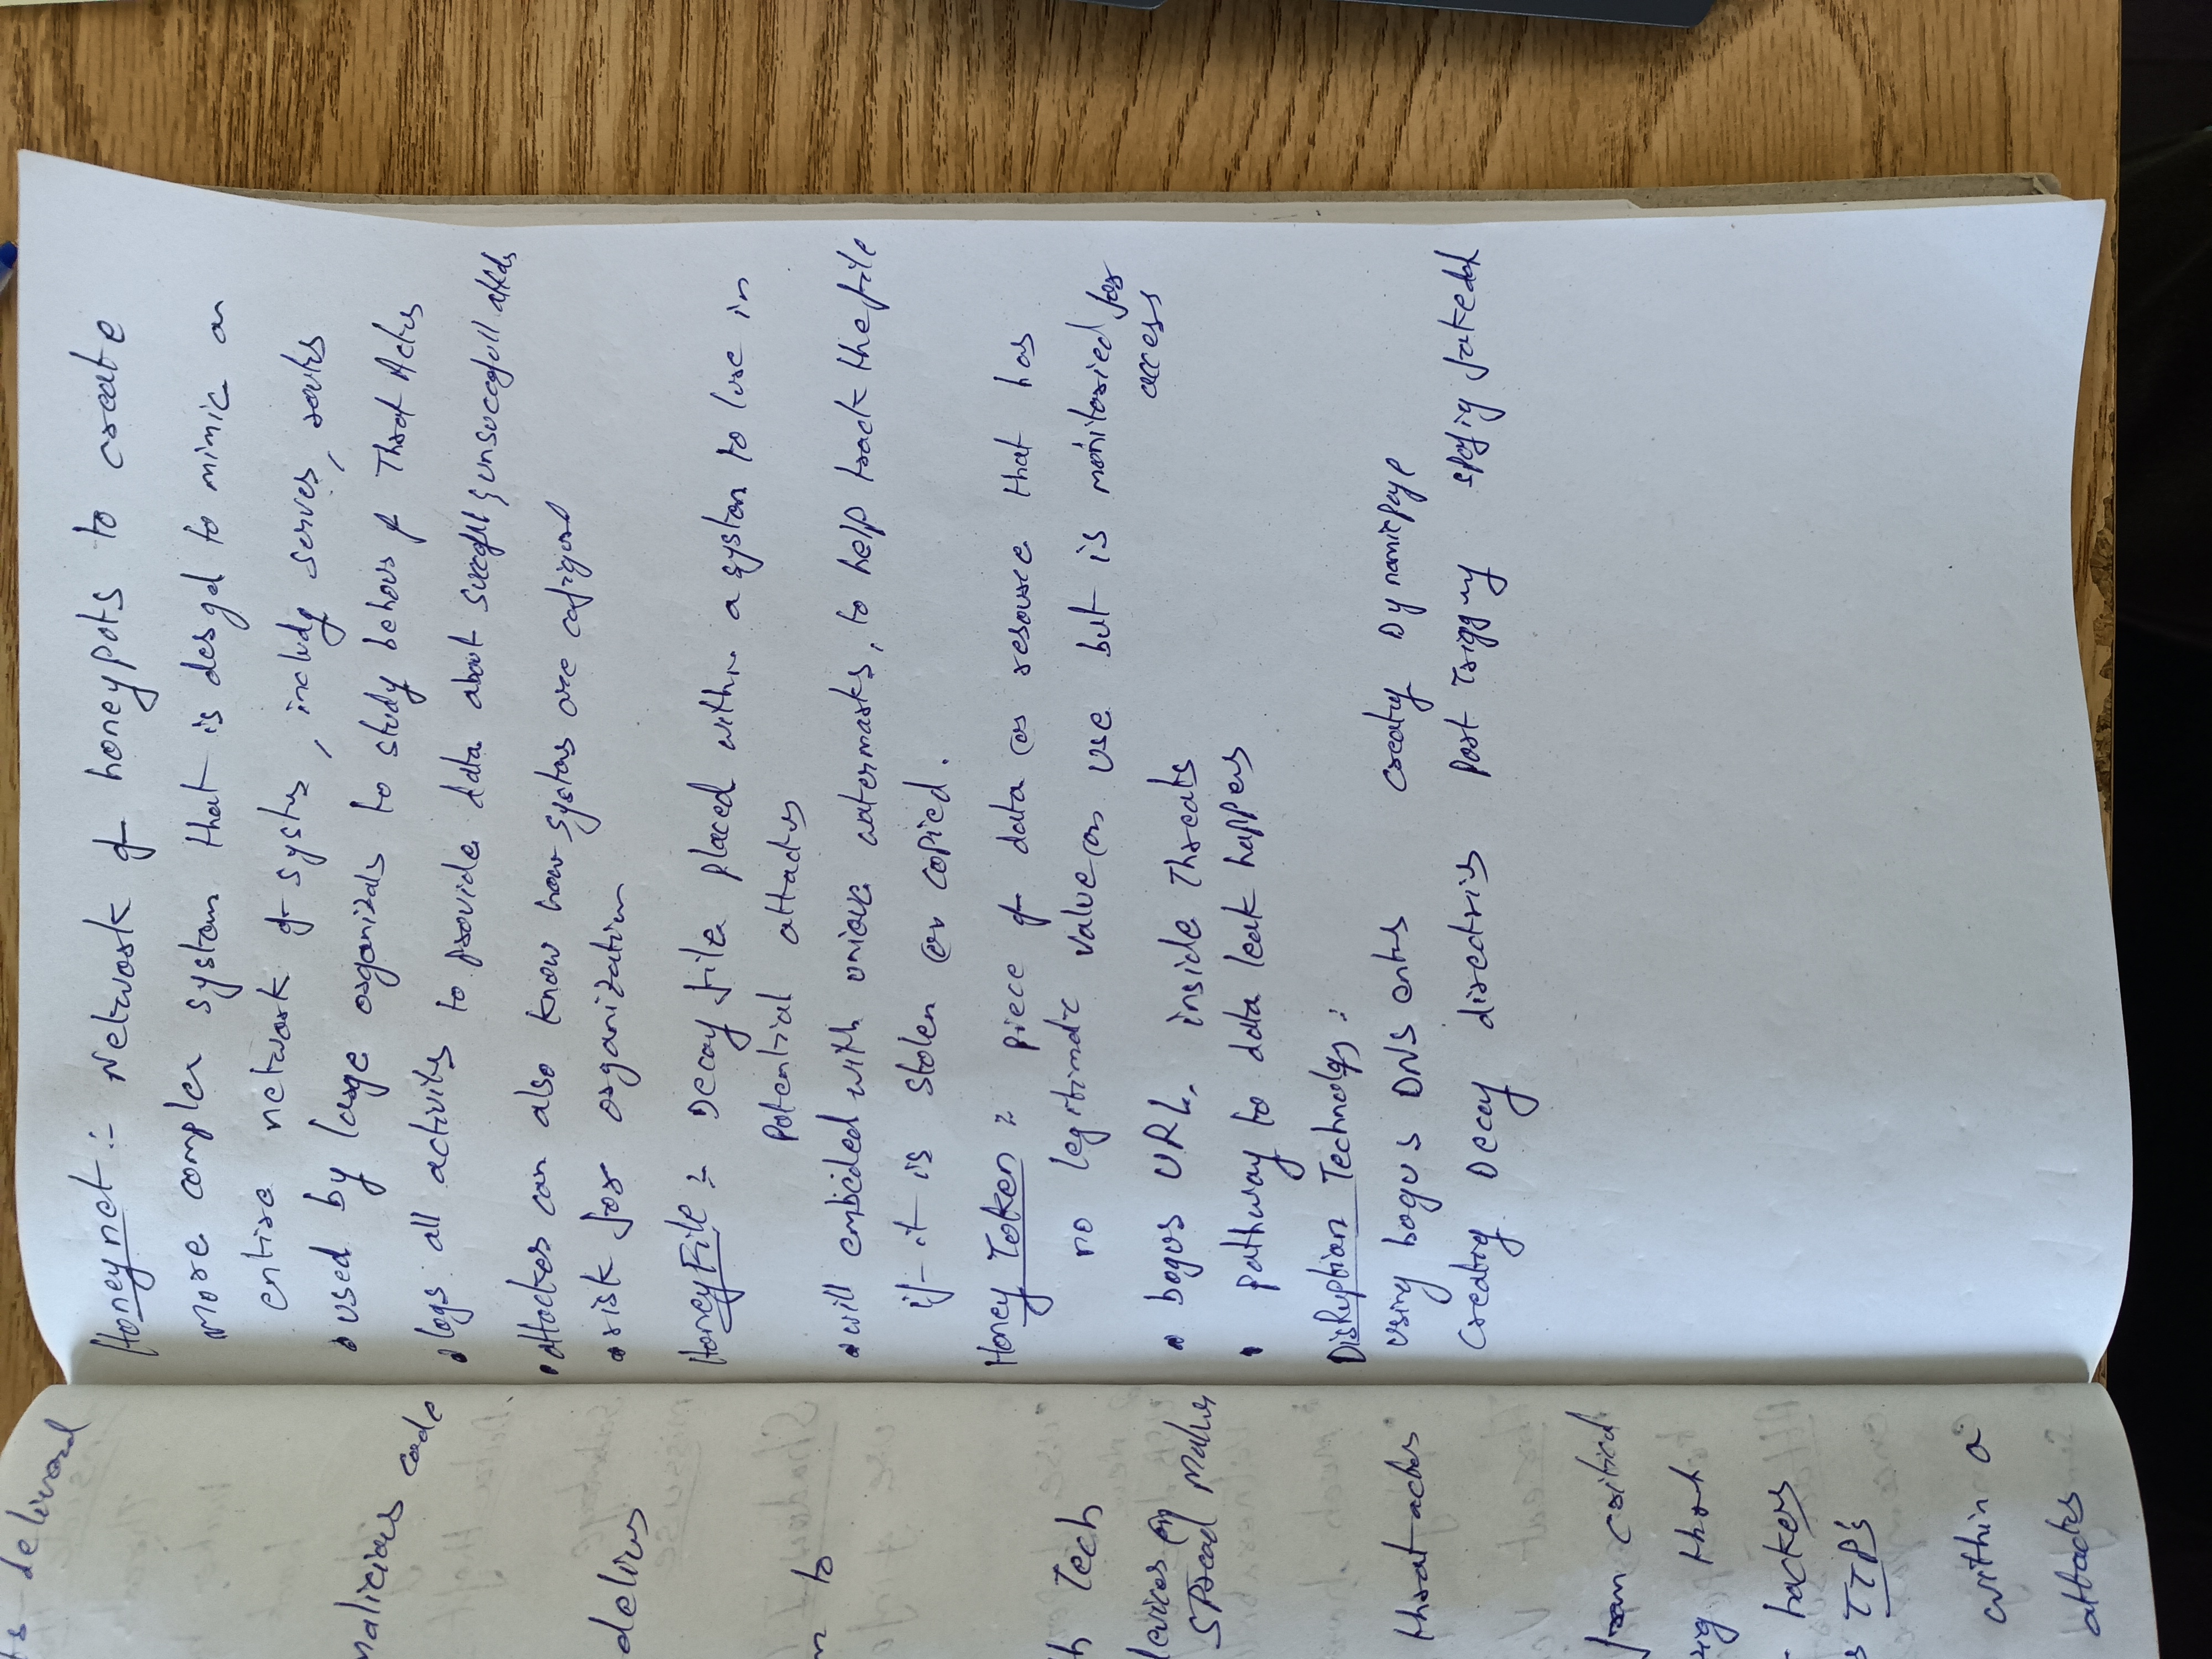 ts deliverd
malicious code
delivers
n to
h Tech
devices or
spread Malwr
threat actors
from critical
ing that
hackers
s TTP's
within a
attackrs
Honeynet :- Network of honeypots to create
more complex system that is desgd to mimic an
entire network of systms, includg serves, routrs
• used by large organizatns to study behavr of Threat Actrs
• logs all activitys to provide data about succesfull & unsuccesfull attcks
• attacker can also know how systms are cofigurd
• risk for organization
HoneyFile :- Decoy file placed within a system to lure in
Potential attackrs
• will embeded with unique watermarks, to help track the file
if it is stolen or copied.
Honey Token : piece of data or resource that has
no legitimate value or use but is monitoried for
access
• bogus URL, inside Threats
• pathway to data leak happens
Disruption Technology :
Using bogus DNS entrs Creatig Dynamic page
Creatig Decoy directries Port Triggrg spofig fake